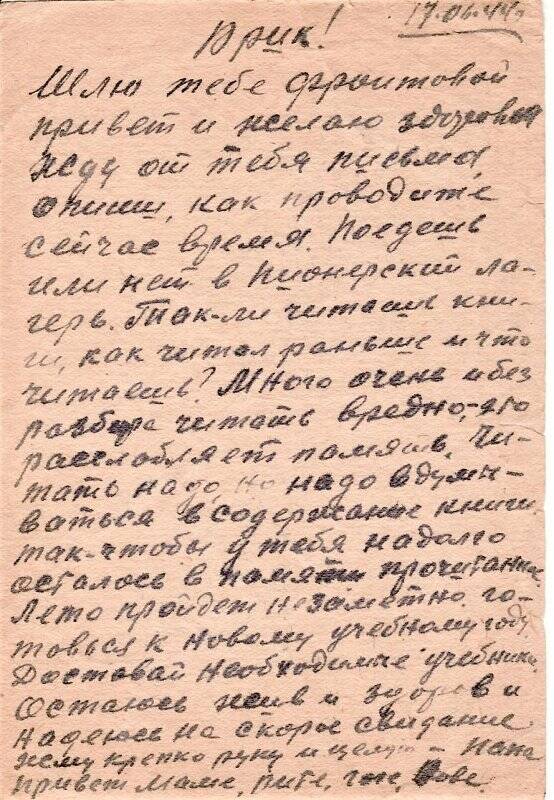 17.06.44 г.
Юрик!
Шлю тебе фронтовой
привет и желаю здоровья
жду от тебя письма,
опиши, как проводите
сейчас время. Поедешь
или нет в Пионерский ла-
герь. Так-ли читаешь кни-
ги, как читал раньше и что
читаешь? Много очень и без
разбора читать вредно, это
расслабляет память. Чи-
тать надо, но надо вдумы-
ваться в содержание книги
так-чтобы у тебя надолго
осталось в памяти прочитанное.
Лето пройдет незаметно го-
товься к новому учебному году.
Доставай необходимые учебники.
Остаюсь жив и здоров и
надеюсь на скорое свидание.
жму крепко руку и целую - Папа
привет Маме, Вове.